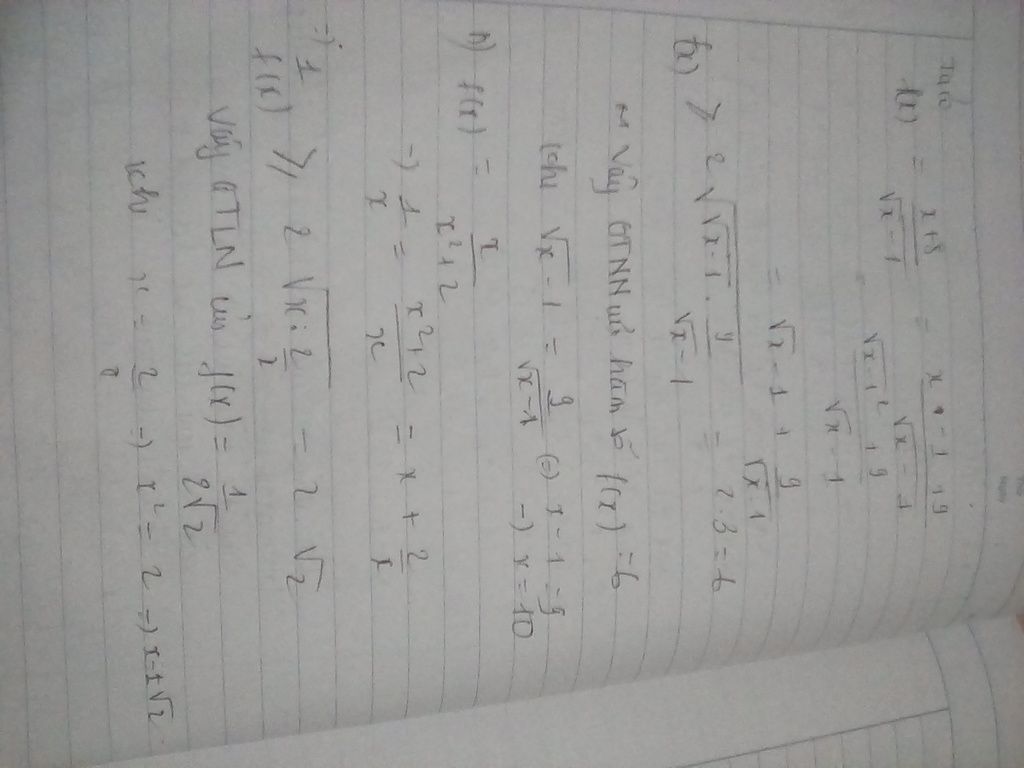 Ta có
f(x) = \frac{x+8}{\sqrt{x-1}} = \frac{x-1+9}{\sqrt{x-1}}
\frac{\sqrt{x-1}^2+9}{\sqrt{x-1}}
= \sqrt{x-1} + \frac{9}{\sqrt{x-1}}
f(x) ≥ 2\sqrt{\sqrt{x-1}.\frac{9}{\sqrt{x-1}}} = 2.3=6
Vậy GTNN của hàm số f(x) = 6
khi \sqrt{x-1} = \frac{9}{\sqrt{x-1}} (=) x-1=9 -) x=10
f(x) = \frac{x}{x^2+2}
-) \frac{1}{x} = \frac{x^2+2}{x} = x + \frac{2}{x}
=) \frac{1}{f(x)} ≥ 2\sqrt{x.\frac{2}{x}} = 2\sqrt{2}
Vậy GTLN của f(x) = \frac{1}{2\sqrt{2}}
khi x = \frac{2}{x} -) x^2 = 2 -) x=±\sqrt{2}